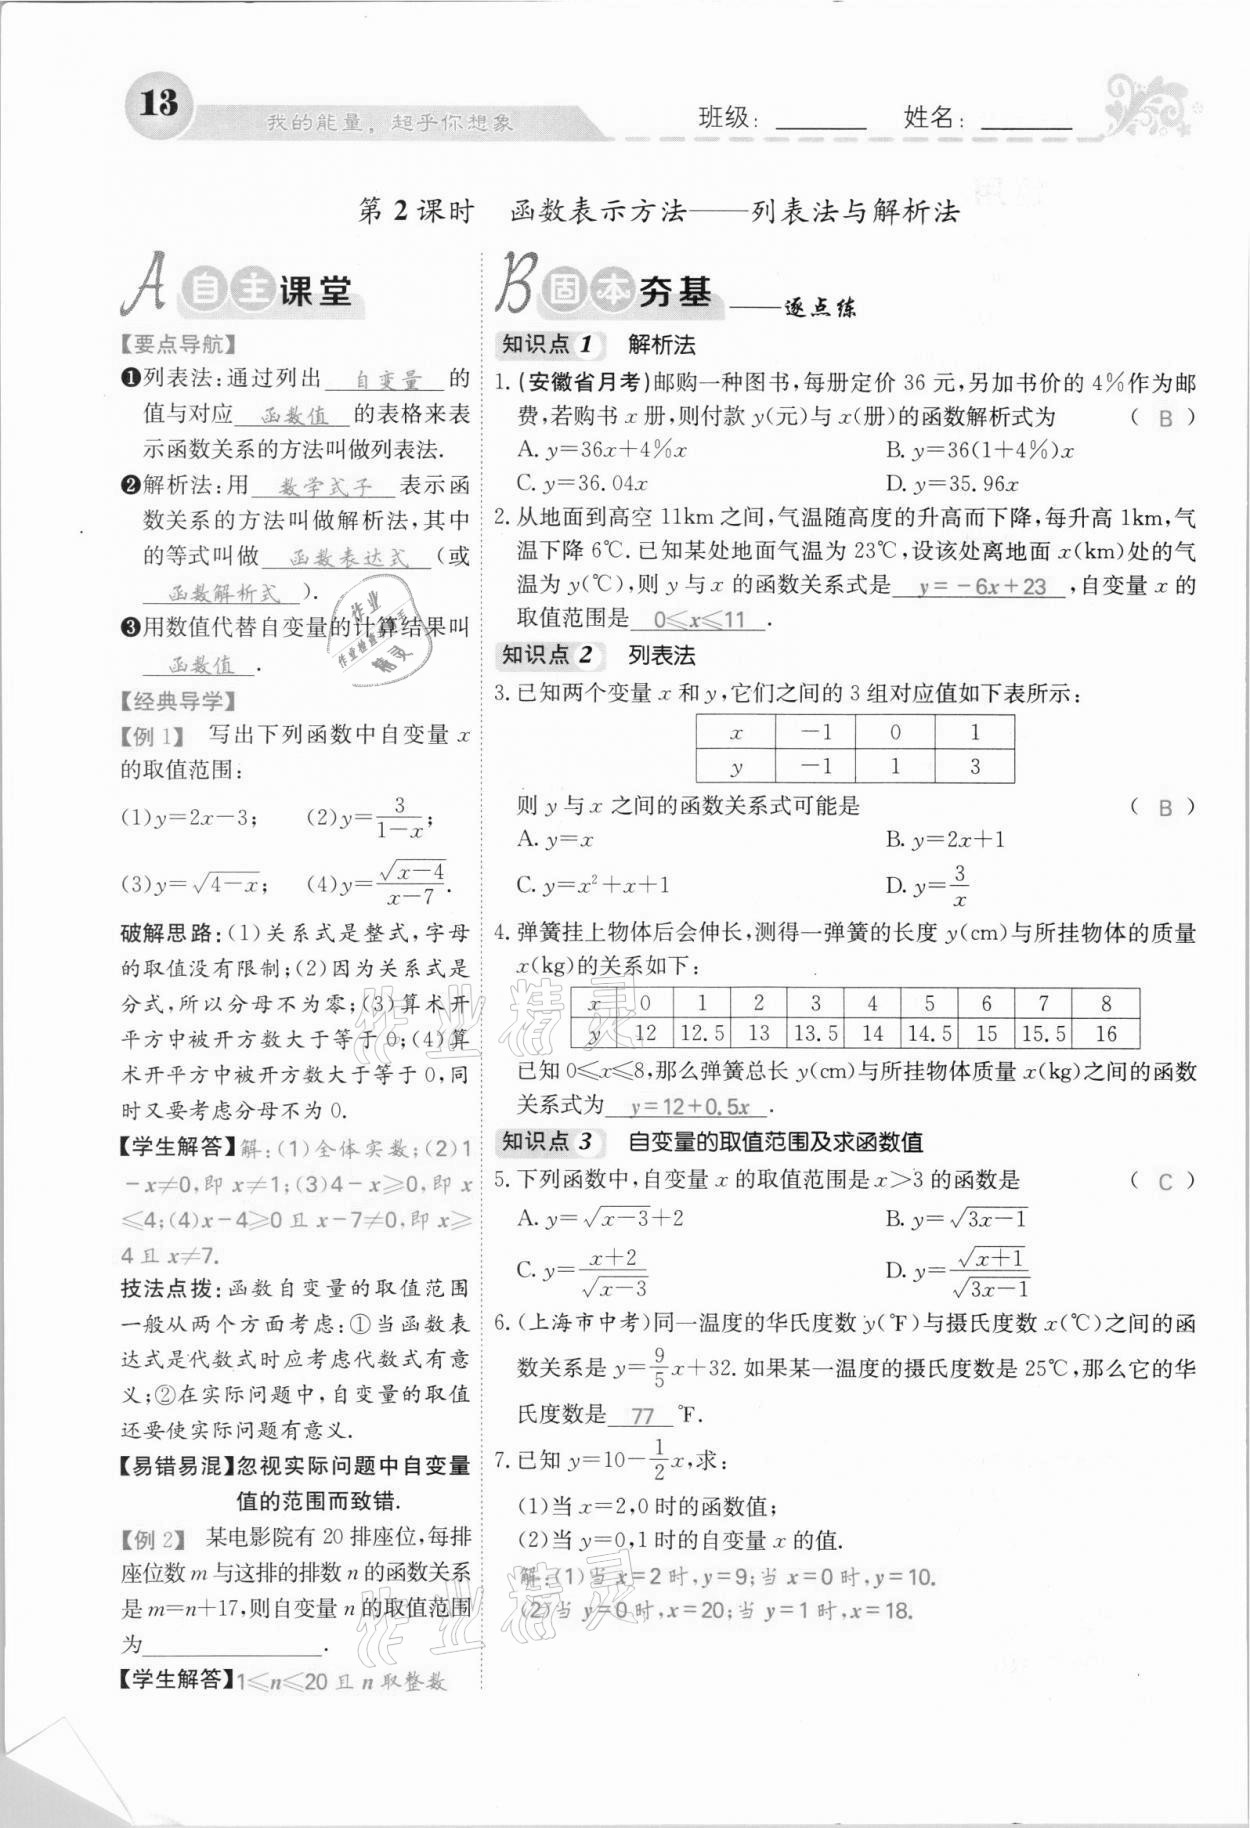 13
我的能量，超乎你想象
班级：______ 姓名：______
第2课时 函数表示方法——列表法与解析法
A 自主课堂
【要点导航】
❶列表法:通过列出 自变量 的
值与对应 函数值 的表格来表
示函数关系的方法叫做列表法.
❷解析法:用 数学式子 表示函
数关系的方法叫做解析法,其中
的等式叫做 函数表达式 (或
函数解析式 ).
❸用数值代替自变量的计算结果叫
函数值 .
【经典导学】
【例1】 写出下列函数中自变量 x
的取值范围:
(1)y=2x-3; (2)y=3/(1-x);
(3)y=√(4-x); (4)y=√(x-4)/(x-7).
破解思路:(1)关系式是整式,字母
的取值没有限制;(2)因为关系式是
分式,所以分母不为零;(3)算术开
平方中被开方数大于等于0;(4)算
术开平方中被开方数大于等于0,同
时又要考虑分母不为0.
【学生解答】解:(1)全体实数;(2)1
-x≠0,即x≠1;(3)4-x≥0,即x
≤4;(4)x-4≥0且x-7≠0,即x≥
4且x≠7.
技法点拨:函数自变量的取值范围
一般从两个方面考虑:①当函数表
达式是代数式时应考虑代数式有意
义;②在实际问题中,自变量的取值
还要使实际问题有意义.
【易错易混】忽视实际问题中自变量
值的范围而致错.
【例2】 某电影院有20排座位,每排
座位数m与这排的排数n的函数关系
是m=n+17,则自变量n的取值范围
为______.
【学生解答】1≤n≤20且n取整数
B 固本夯基 ——逐点练
知识点1 解析法
1.(安徽省月考)邮购一种图书,每册定价36元,另加书价的4%作为邮
费,若购书x册,则付款y(元)与x(册)的函数解析式为 ( B )
A. y=36x+4%x B. y=36(1+4%)x
C. y=36.04x D. y=35.96x
2.从地面到高空11km之间,气温随高度的升高而下降,每升高1km,气
温下降6℃.已知某处地面气温为23℃,设该处离地面x(km)处的气
温为y(℃),则y与x的函数关系式是 y=-6x+23 ,自变量x的
取值范围是 0≤x≤11 .
知识点2 列表法
3.已知两个变量x和y,它们之间的3组对应值如下表所示:
x -1 0 1
y -1 1 3
则y与x之间的函数关系式可能是 ( B )
A. y=x B. y=2x+1
C. y=x²+x+1 D. y=3/x
4.弹簧挂上物体后会伸长,测得一弹簧的长度y(cm)与所挂物体的质量
x(kg)的关系如下:
x 0 1 2 3 4 5 6 7 8
y 12 12.5 13 13.5 14 14.5 15 15.5 16
已知0≤x≤8,那么弹簧总长y(cm)与所挂物体质量x(kg)之间的函数
关系式为 y=12+0.5x .
知识点3 自变量的取值范围及求函数值
5.下列函数中,自变量x的取值范围是x>3的函数是 ( C )
A. y=√(x-3)+2 B. y=√(3x-1)
C. y=(x+2)/√(x-3) D. y=√(x+1)/√(3x-1)
6.(上海市中考)同一温度的华氏度数y(℉)与摄氏度数x(℃)之间的函
数关系是y=9/5x+32.如果某一温度的摄氏度数是25℃,那么它的华
氏度数是 77 ℉.
7.已知y=10-1/2x,求:
(1)当x=2,0时的函数值;
(2)当y=0,1时的自变量x的值.
解:(1)当x=2时,y=9;当x=0时,y=10.
(2)当y=0时,x=20;当y=1时,x=18.
作业
作业检查
精灵
作业精灵
作业精灵